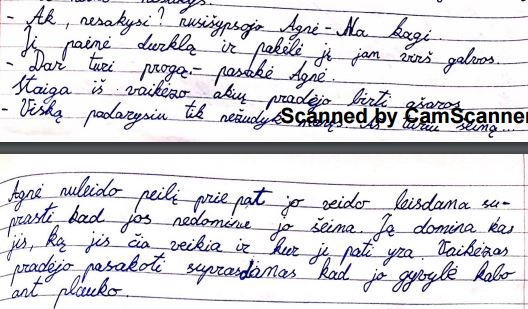 - Ak, nesakysi? nusišypsojo Agnė - Na kągi.
Ji paėmė durklą ir pakėlė jį jam virš galvos.
- Dar turi progą. - pasakė Agnė
Staiga iš vaikėzo akių pradėjo birti ašaros
- Viską padarysiu tik nežudyk šeimą...
Scanned by CamScanner
Agnė nuleido peilį prie pat jo veido leisdama su-
prasti kad jos nedomina jo šeima. Ją domina kas
jis, ką jis čia veikia ir kur ji pati yra. Vaikėzas
pradėjo pasakoti suprasdamas kad jo gyvybė kabo
ant plauko.